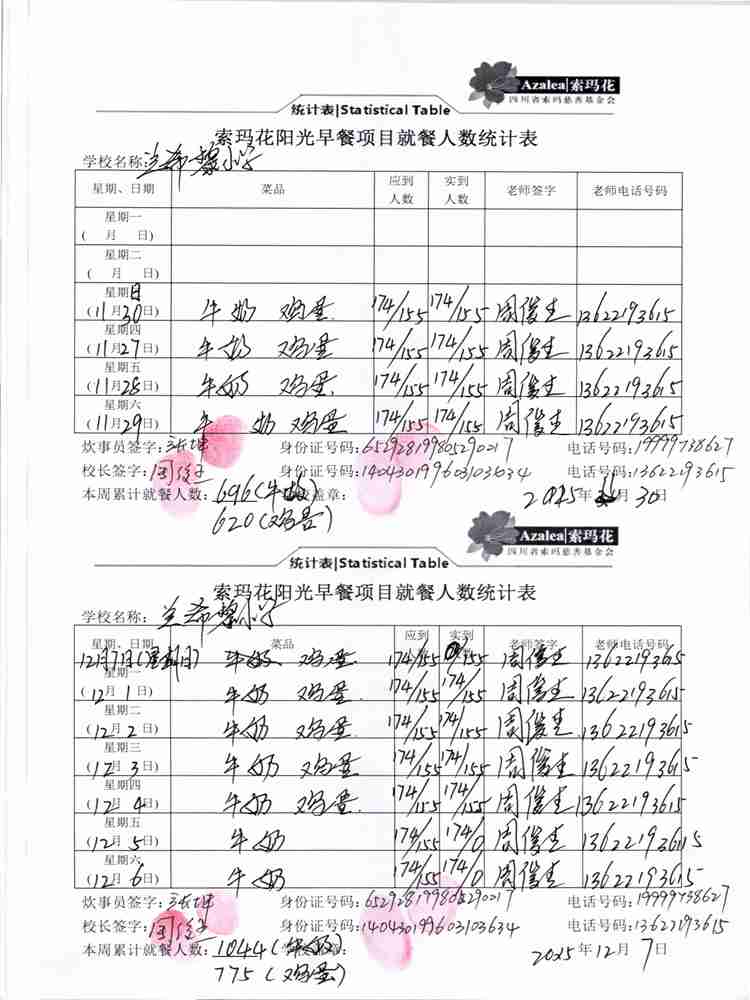 Azalea|索玛花
四川省索玛慈善基金会
统计表|Statistical Table
索玛花阳光早餐项目就餐人数统计表
学校名称:兰希黎小学
星期、日期 菜品 应到人数 实到人数 老师签字 老师电话号码
星期一
( 月 日)
星期二
( 月 日)
星期日
(11月30日) 牛奶 鸡蛋 174/155 174/155 周俊生 13622193615
星期四
(11月27日) 牛奶 鸡蛋 174/155 174/155 周俊生 13622193615
星期五
(11月28日) 牛奶 鸡蛋 174/155 174/155 周俊生 13622193615
星期六
(11月29日) 牛奶 鸡蛋 174/155 174/155 周俊生 13622193615
炊事员签字: 身份证号码:652928199805290217 电话号码:19999738627
校长签字:周俊生 身份证号码:140430199603103634 电话号码:13622193615
本周累计就餐人数:696(牛奶) 盖章: 2025年11月30日
620(鸡蛋)
Azalea|索玛花
四川省索玛慈善基金会
统计表|Statistical Table
索玛花阳光早餐项目就餐人数统计表
学校名称:兰希黎小学
星期、日期 菜品 应到 实到 老师签字 老师电话号码
12月7日(星期日) 牛奶 鸡蛋 174/155 0/155 周俊生 13622193615
星期一
(12月1日) 牛奶 鸡蛋 174/155 174/155 周俊生 13622193615
星期二
(12月2日) 牛奶 鸡蛋 174/155 174/155 周俊生 13622193615
星期三
(12月3日) 牛奶 鸡蛋 174/155 174/155 周俊生 13622193615
星期四
(12月4日) 牛奶 鸡蛋 174/155 174/155 周俊生 13622193615
星期五
(12月5日) 牛奶 174/155 174/0 周俊生 13622193615
星期六
(12月6日) 牛奶 174/155 174/0 周俊生 13622193615
炊事员签字: 身份证号码:652928199805290217 电话号码:19999738627
校长签字:周俊生 身份证号码:140430199603103634 电话号码:13622193615
本周累计就餐人数:1044(牛奶) 2025年12月7日
775(鸡蛋)